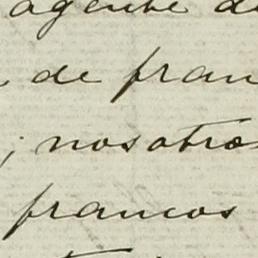 agente d
de fran
; nosotros
francos